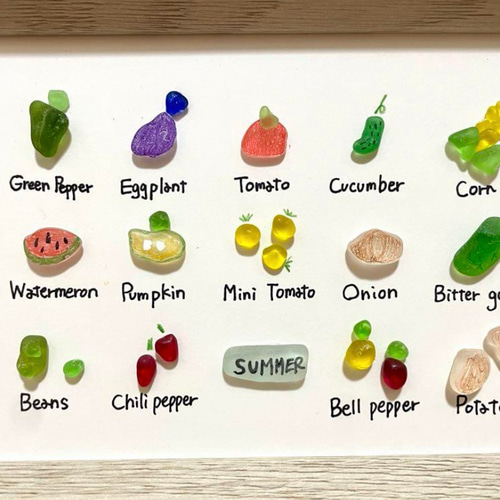 Green Pepper
Eggplant
Tomato
Cucumber
Corn
Watermeron
Pumpkin
Mini Tomato
Onion
Bitter
Beans
Chili pepper
SUMMER
Bell pepper